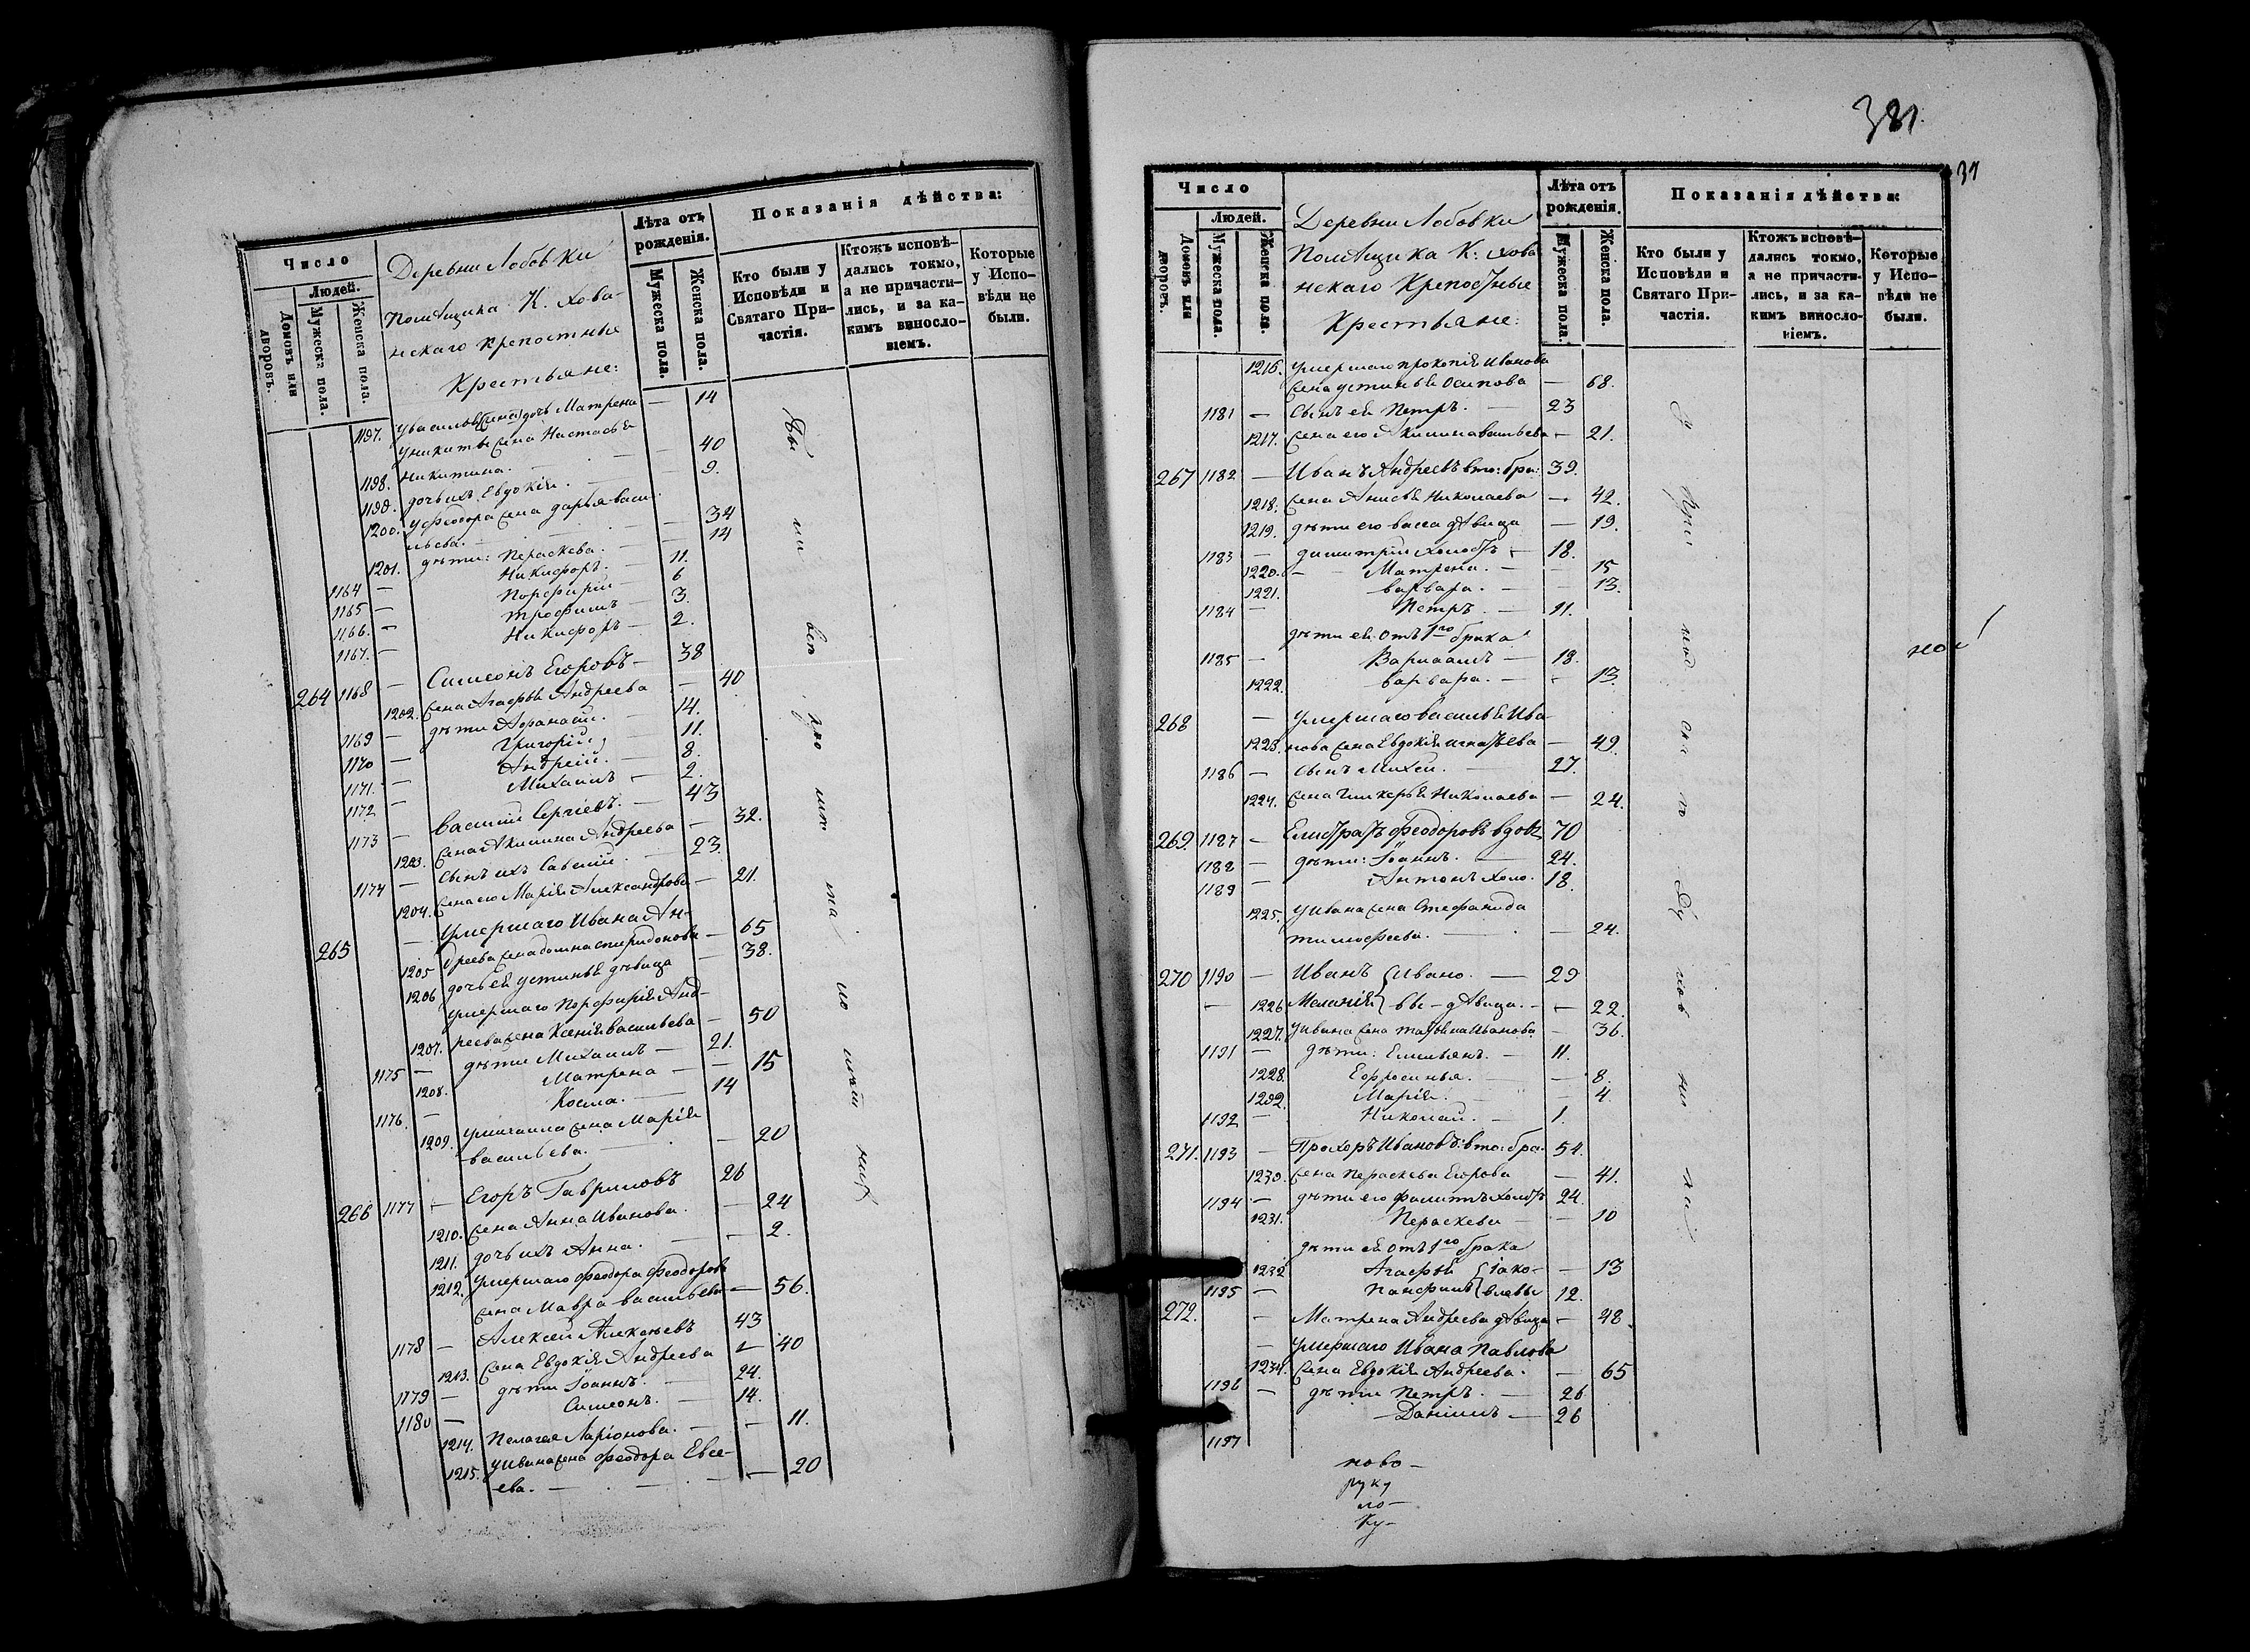 Число
Людей.
Домовъ или дворовъ.
Мужеска пола.
Женска пола.
Деревни Лобовки
Помѣщика К. Хова-
нскаго крепостные
Крестьяне:
Лѣта отъ рожденія.
Мужеска пола.
Женска пола.
Показанія дѣйства:
Кто были у Исповѣди и Святаго При-частія.
Ктожъ исповѣ-дались токмо, а не причасти-лись, и за ка-кимъ винословіемъ.
Которые у Испо-вѣди не были.
1197. дочь Матрена — 14
у никиты жена Настасья
1198. Никитина. — 40
1199. дочь ихъ Евдокія. — 9.
1200. у Феодора жена дарья васи-
льева. — 34
1201. дѣти: Параскева. — 14
1164 — Никифоръ. — 11.
1165 — Порфирій — 6
1166. — Трофимъ — 3.
1167. — Никифоръ — 2.
264 1168 — Симеонъ Егоровъ — 38
1202. жена Агафья Андреева — 40
1169 — дѣти Афанасій. — 14.
1170 — Григорій, — 11.
1171. — Андрей. — 8.
1172 — Михаилъ — 2.
1173 — Василій Сергіевъ. — 43
1203. жена Акилина Андреева — 32.
1174 — сынъ ихъ Савелій. — 23.
1204. жена его Марія Александрова — 21.
265 — Умершаго Ивана Ан-
1205 дреева жена домна спиридонова — 65
1206 дочь ея устинья дѣвица — 38.
умершаго Порфирія Анд-
1207. реева жена Ксенія васильева — 50
1175 — дѣти Михаилъ — 21.
1208. Матрена — 15
1176. — Косма. — 14
1209. у михаила жена Марія
васильева. — 20
266 1177 — Егоръ Гавриловъ 26
1210. жена Анна Иванова. — 24
1211. дочь ихъ Анна. — 2.
1212. умершаго Феодора Феодорова
жена Мавра васильева — 56.
1178 — Алексей Алексѣевъ 43
1213. жена Евдокія Андреева — 40
1179 — дѣти Іоаннъ. — 24.
1180 — Симеонъ. — 14.
1214. Пелагея Ларіонова. — 11.
1215. у Ивана жена Феодора Евсе-
ева. — 20
381.
Число
Людей.
Домовъ или дворовъ.
Мужеска пола.
Женска пола.
Деревни Лобовки
Помѣщика К: Хова
нскаго Крепостные
Крестьяне:
Лѣта отъ рожденія.
Мужеска пола.
Женска пола.
Показанія дѣйства:
Кто были у Исповѣди и Святаго При-частія.
Ктожъ исповѣ-дались токмо, а не причасти-лись, и за ка-кимъ винословіемъ.
Которые у Испо-вѣди не были.
1216. умершаго прокопія Иванова
жена устинья Осипова — 68.
1181 — сынъ ея Петръ. — 23
1217. жена его Акилина васильева — 21.
267 1182 — Иванъ Андреевъ вто: бра: 39.
1218. жена Анисья Николаева — 42.
1219. дѣти его васса дѣвица — 19.
1183 — димитрій холостъ — 18.
1220. — Матрена. — 15
1221. варвара. — 13.
1184 — Петръ. — 11.
дѣти ея отъ 1го брака
1185 — Варлаамъ — 18.
1222. варвара. — 13.
268 — умершаго василья Ива-
1223. нова жена Евдокія игнатьева — 49.
1186 — сынъ Михей. — 27.
1224. жена Гликерья Николаева — 24.
269. 1187 — Елистратъ Феодоровъ вдовъ 70
1188 — дѣти: Іоаннъ. — 24.
1189 — Антонъ холо. 18.
1225. у ивана жена Стефанида
тимофеева. — 24.
270 1190 — Иванъ Ивано. — 29
— 1226 Меланія вы — дѣвица. — 22.
1227. у ивана жена татьяна Иванова — 36.
1191 — дѣти: Емельянъ. — 11.
1228. Ефросинья. — 8.
1292. Марія. — 4.
1192 — Николай. — 1.
271. 1193 — Прохоръ Ивановъ: вто: бра. 54.
1230. жена Пераскева Егорова — 41.
1194 — дѣти его филипъ холостъ 24.
1231. Пераскева — 10
дѣти ея отъ 1го брака
1232 Агафья Іако- — 13
1195 — Панфилъ влевы 12.
272. — Матрена Андреева дѣвица — 48.
— умершаго Ивана Павлова
1234. жена Евдокія Андреева. — 65
1196 — дѣти Петръ. — 26
— Даніилъ — 26
1197
ново —
руку
ло —
ку —